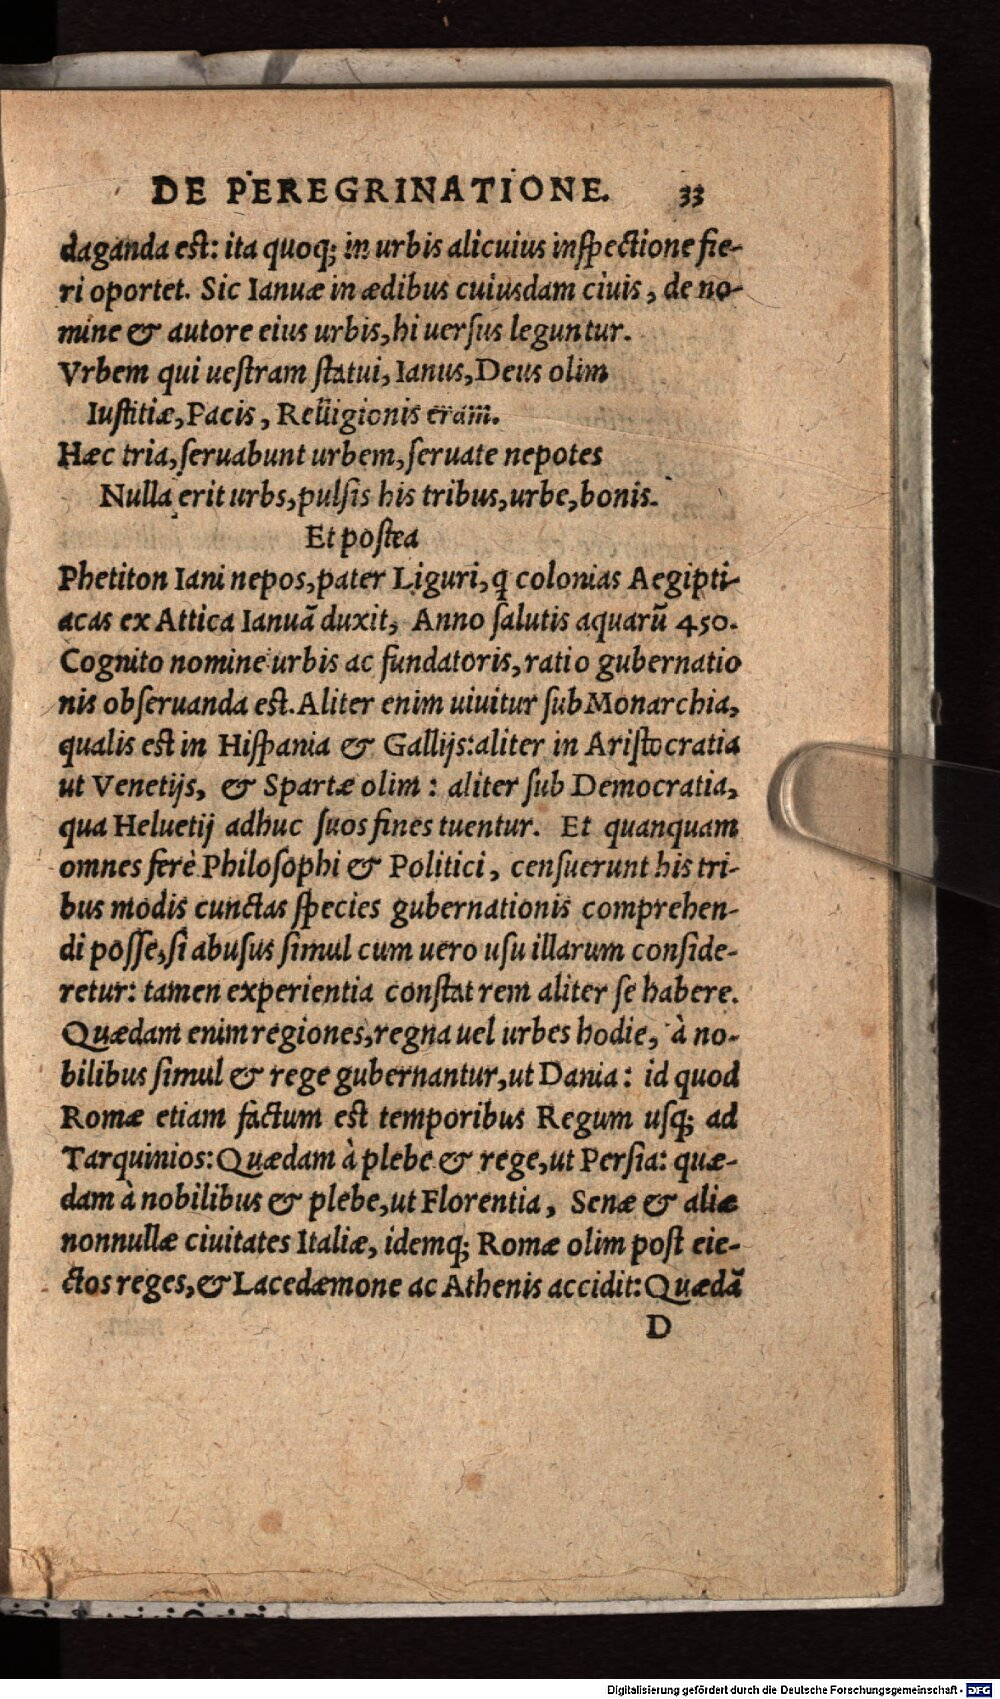 DE PEREGRINATIONE. 33
daganda est: ita quoq; in urbis alicuius inspectione fie-
ri oportet. Sic Ianuæ in ædibus cuiusdam ciuis, de no-
mine & autore eius urbis, hi uersus leguntur.
Vrbem qui uestram statui, Ianus, Deus olim
Iustitiæ, Pacis, Relligionis eram.
Hæc tria, seruabunt urbem, seruate nepotes
Nulla erit urbs, pulsis his tribus, urbe, bonis.
Et postea
Phetiton Iani nepos, pater Liguri, q̃ colonias Aegipti-
acas ex Attica Ianuã duxit, Anno salutis aquarũ 450.
Cognito nomine urbis ac fundatoris, ratio gubernatio
nis obseruanda est. Aliter enim uiuitur sub Monarchia,
qualis est in Hispania & Gallijs: aliter in Aristocratia
ut Venetijs, & Spartæ olim: aliter sub Democratia,
qua Heluetij adhuc suos fines tuentur. Et quanquam
omnes ferè Philosophi & Politici, censuerunt his tri-
bus modis cunctas species gubernationis comprehen-
di posse, si abusus simul cum uero usu illarum conside-
retur: tamen experientia constat rem aliter se habere.
Quædam enim regiones, regna uel urbes hodie, à no-
bilibus simul & rege gubernantur, ut Dania: id quod
Romæ etiam factum est temporibus Regum usq; ad
Tarquinios: Quædam à plebe & rege, ut Persia: quæ-
dam à nobilibus & plebe, ut Florentia, Senæ & aliæ
nonnullæ ciuitates Italiæ, idemq; Romæ olim post eie-
ctos reges, & Lacedæmone ac Athenis accidit: Quædã
D
Digitalisierung gefördert durch die Deutsche Forschungsgemeinschaft - DFG